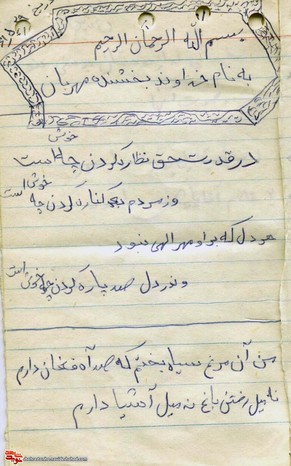 بسم الله الرحمان الرحیم
به نام خداوند بخشنده مهربان
در قدرت حق نظاره کردن چه خوش است
وز مردم بد کناره کردن چه خوش است
هر دل که براو مهر الهی نبود
دل صد پاره کردن چه خوش است
من آن مرغ سیاه بختم که صد آه فغان دارم
نه میل رفتن باغ نه میل آشیا دارم